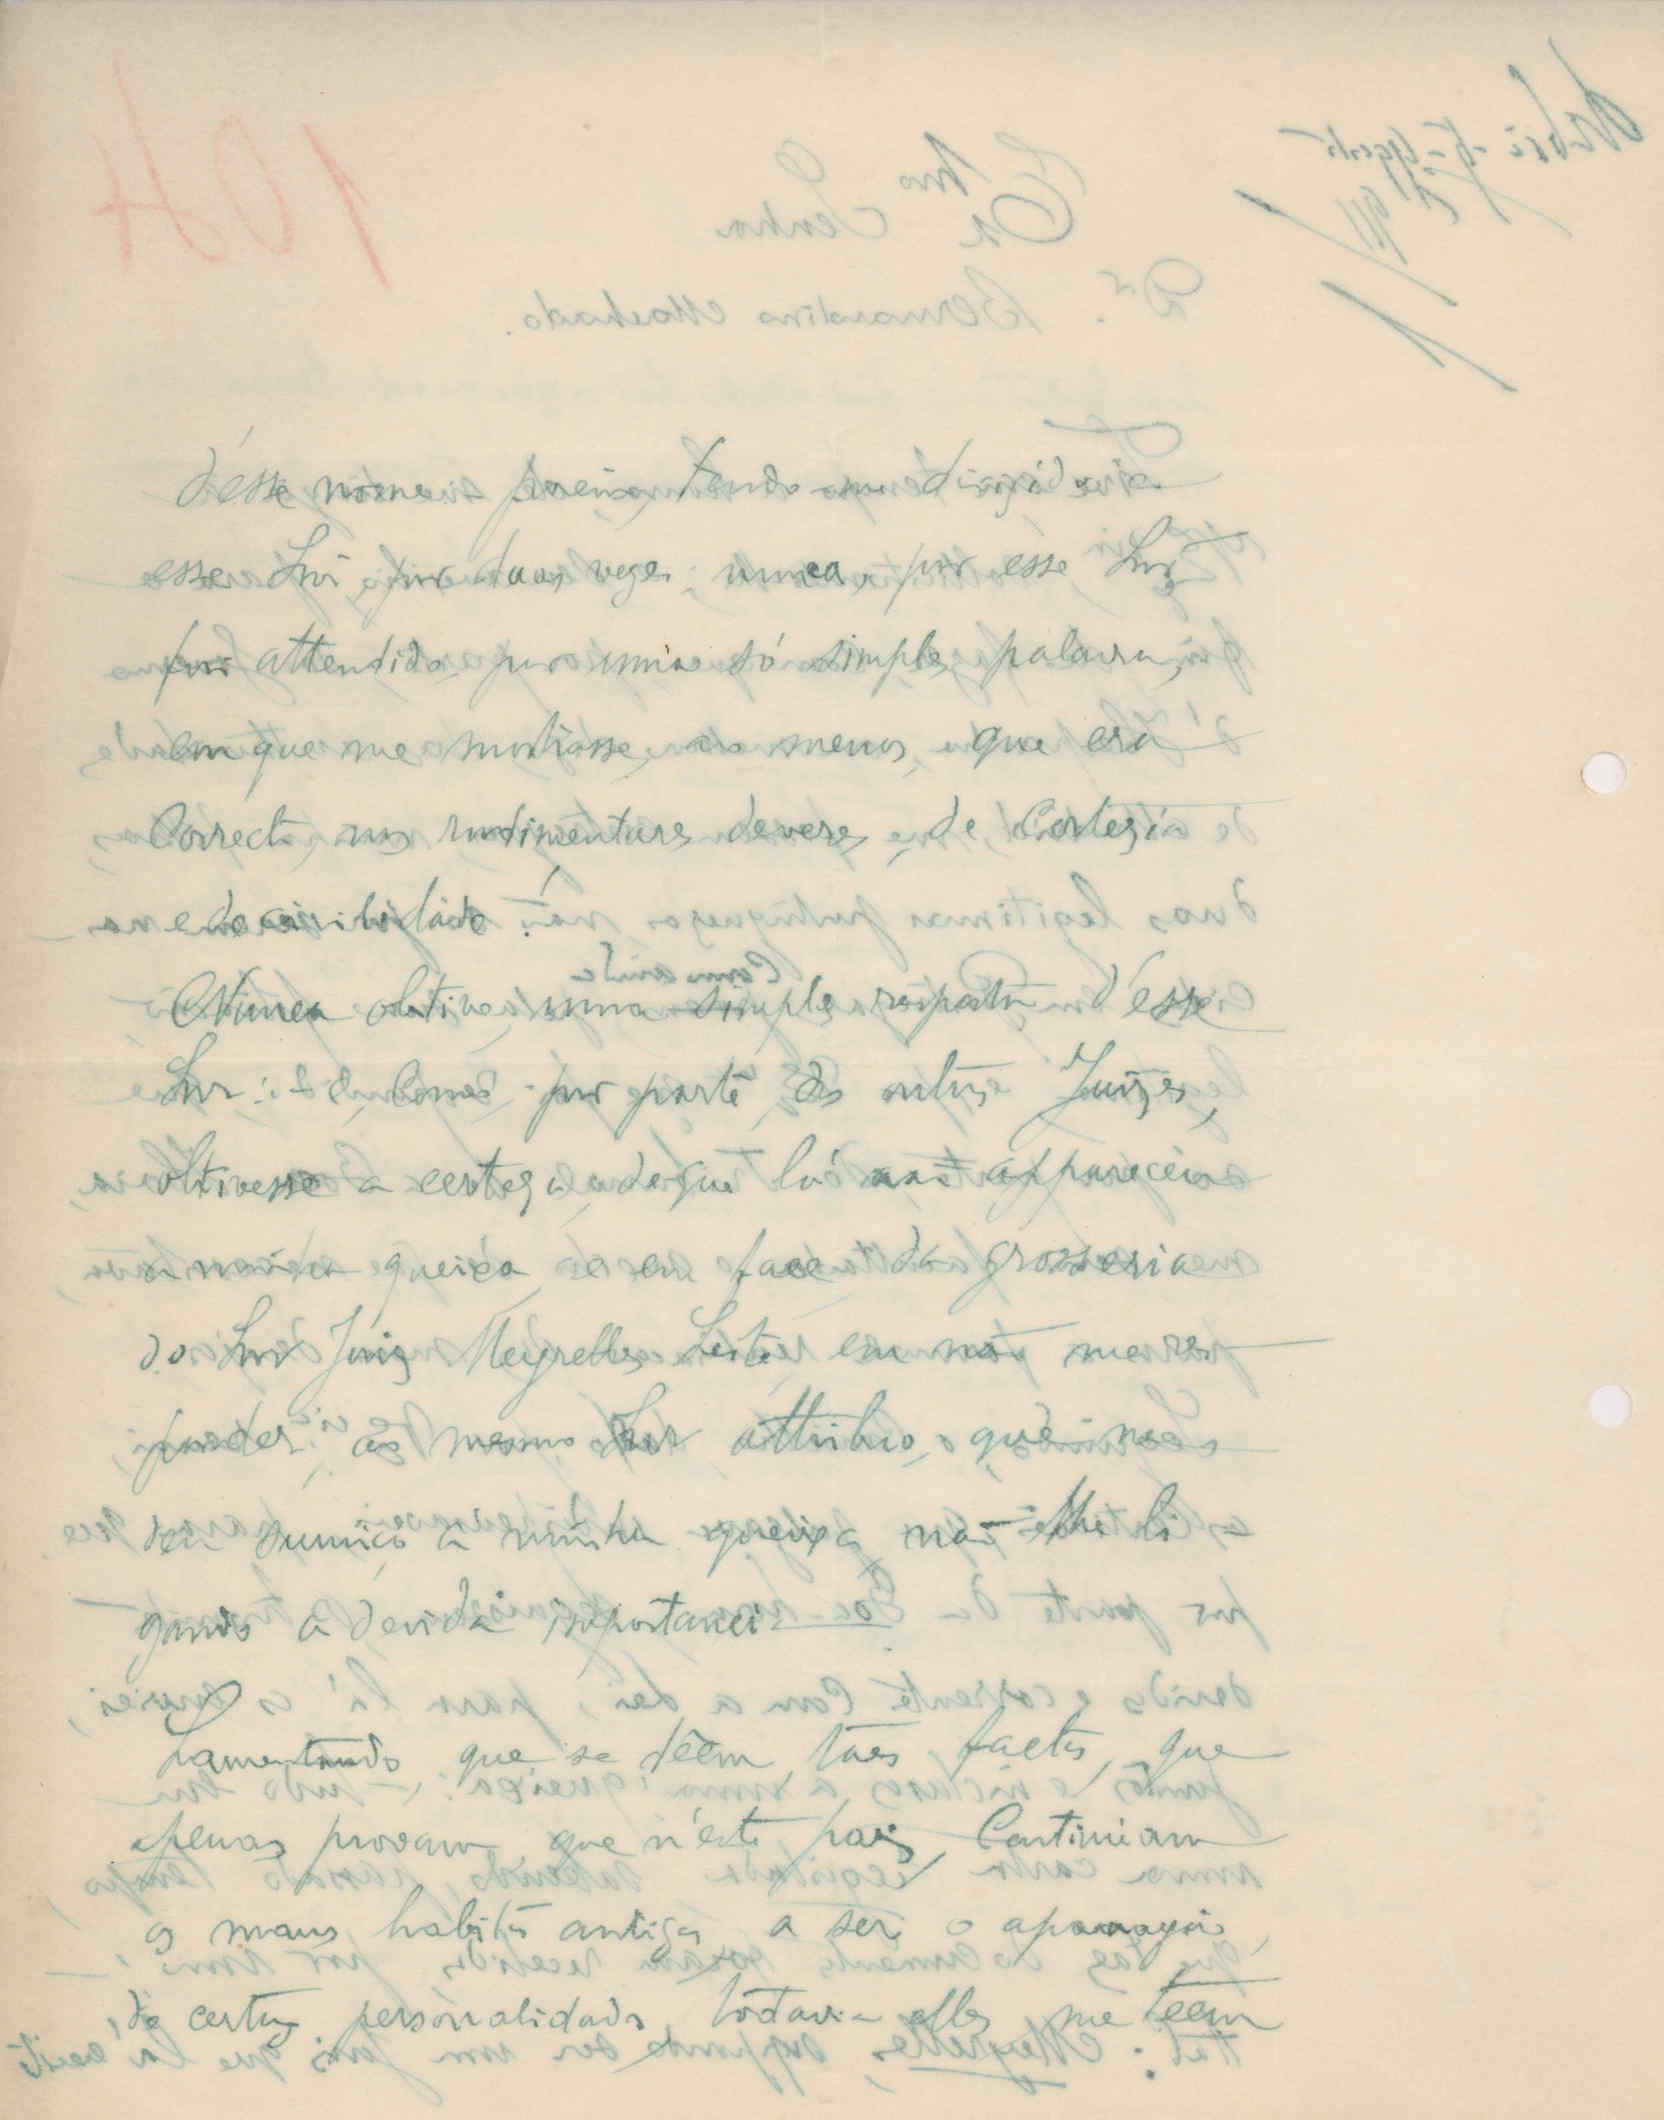 d'esse nome porem, tendo-me dirigido a
esse Snr por duas vezes; nunca, por esse Snr
fui attendido por uma só simples palavra,
em que me mostrasse, ao menos, que era
correcto nos rudimentares deveres de cortezia
e de civilidade!
Nunca obtive, uma simples resposta d'esse
Snr: e, como por parte dos outros Juizes,
obtivesse a certeza de que lá não apparecera
a minha queixa, e em face da grosseria
do Snr Juiz Meyrelles Leite em não me res-
ponder, ao mesmo Snr attribuo, que me
deu sumiço á minha queixa, não lhe li-
gando a devida importancia
Lamentando que se dêem taes factos, que
apenas provam que n'este paiz, continuam
os maus habitos antigos a ser o apanagio
de certas personalidades, todavia elles me teem